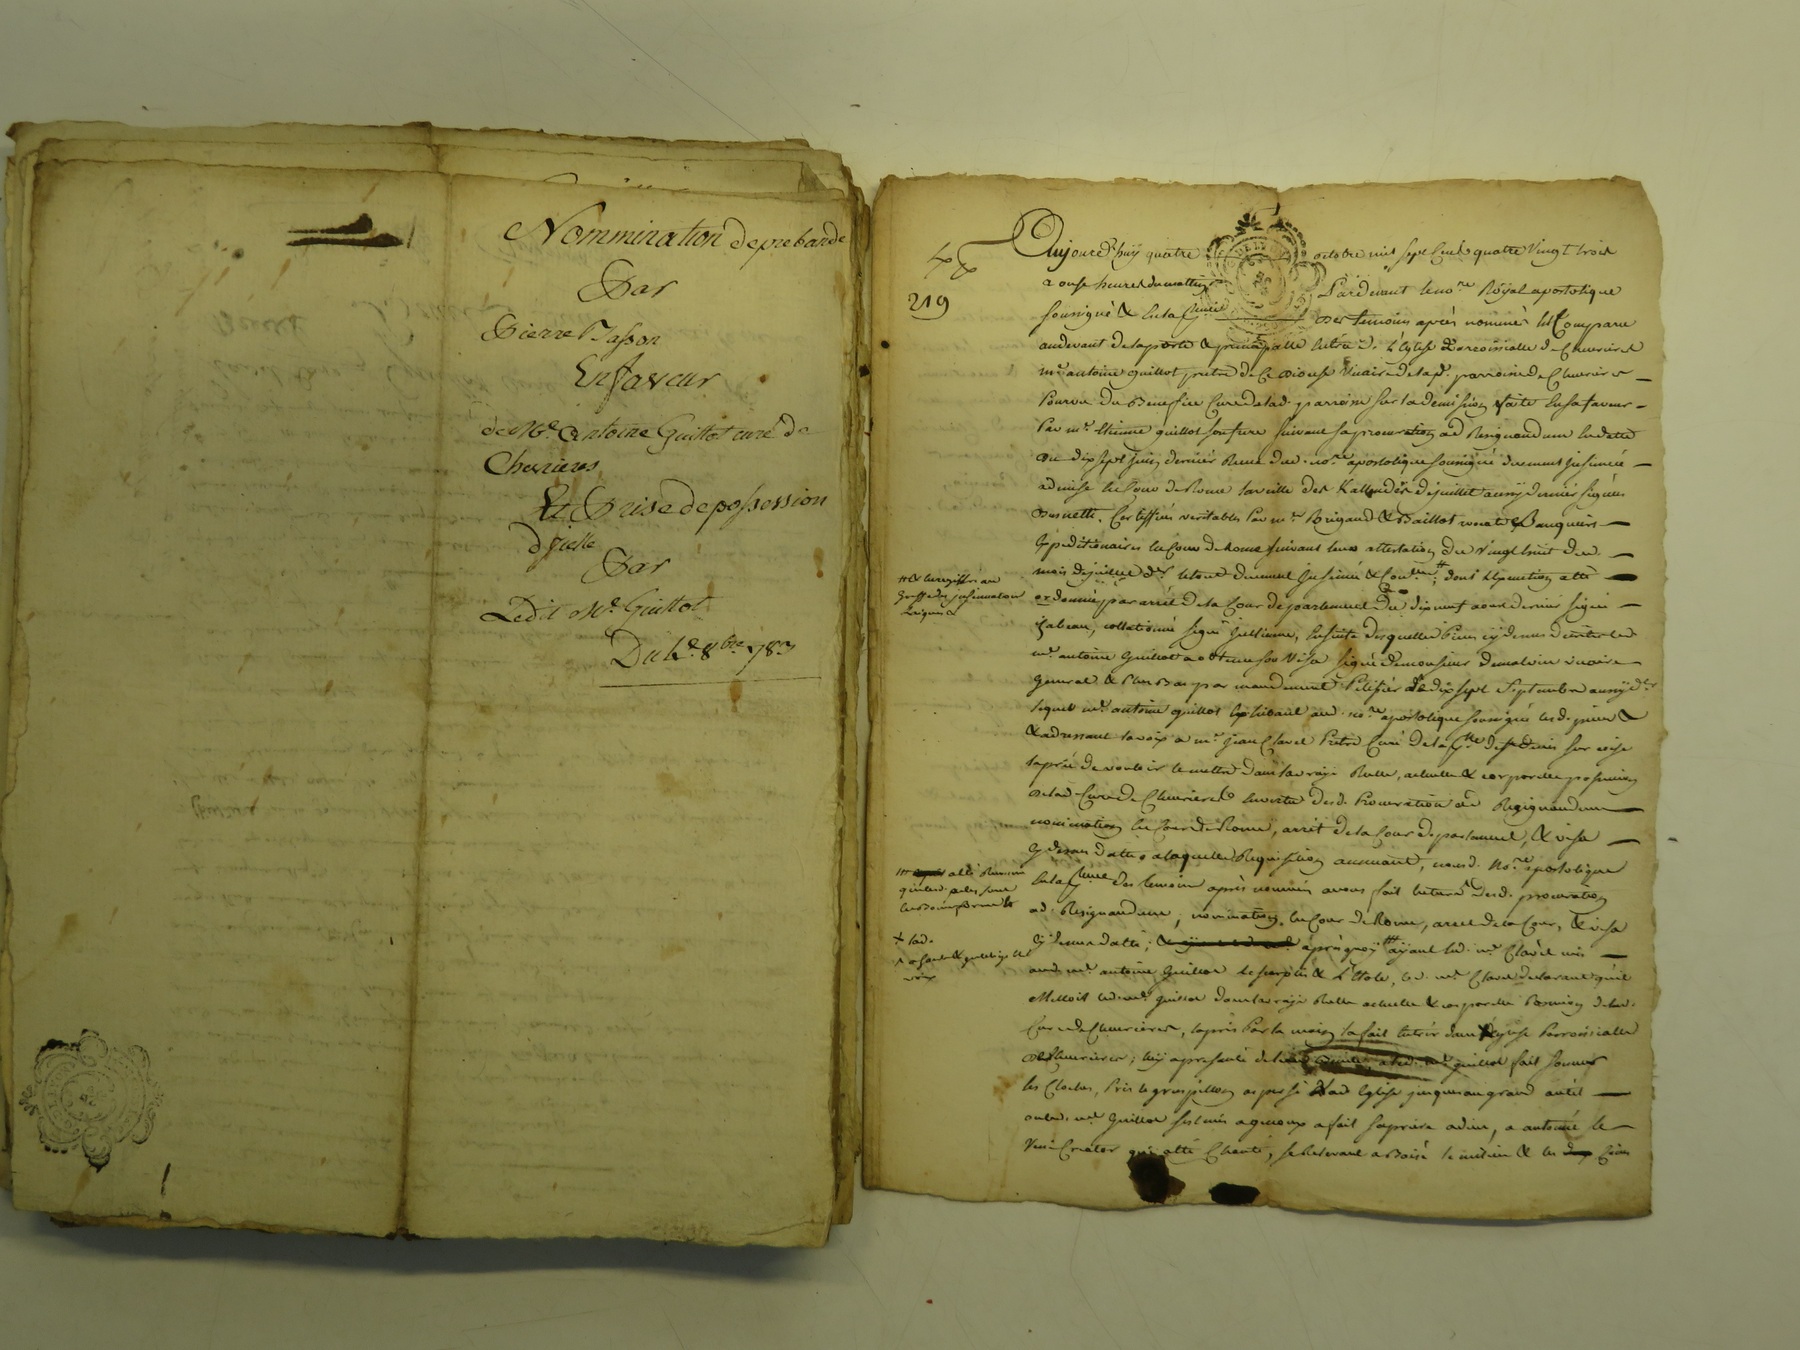 Nommination de prebande
Par
Pierre Basson
En faveur
de Me. Antoine Guillot curé de
Chevrieres
Et Prise de possession
d'jcelle
Par
Ledit Me. Guillot
Du 4e. 8bre 1783
219
Aujourd'huy quatre octobre mil sept cent quatre vingt trois
a onse heures du mattin Pardevant le nore. Royal apostolique
soussigné & en la pnce des temoins après nommés est Comparu
audevant de la porte & principalle entrée de L'Eglise Parroissialle de Chevrieres
mre. antoine guillot pretre de Ce Diocese Vicaire de lad. parroisse de Chevrieres
Pourvu du Benefice Cure de lad. parroisse sur la demission faite En sa faveur
Par mre. Etienne guillot son frere suivant sa procuration ad Resignandum En datte
du dix sept juin dernier Reçue dud. nore. apostolique soussigné duement jnsinuée
admise En Cour de Rome la veille des Kallendes de juillet aussy dernier signées
Certiffiées veritables Par mrs. Brigand & Baillot avocats Banquiers
Expeditionaires En Cour de Rome suivant leur attestation du vingt huit dud.
mois de juillet der. le tout duement jnsinué & dont L'Execution a été
# & Enregistré au
Greffe des jnsinuations
ordonnée par arrêt de la Cour de parlement du dix neuf aout dernier signé
collationné signé En suite desquelles Pieces cy dessus dattées led.
mre. antoine Guillot a obtenu son Visa signé de monsieur vicaire
General & Plus Bas par mandement du dix sept Septembre aussy der.
lequel mre. antoine guillot Exhibant aud. nore. apostolique soussigné lesd. pieces &
& adressant la voix a mre. jean Clavel Pretre Curé de la psse de st denis sur coise
la prié de vouloir le mettre dans la vraye Reelle, actuelle & corporelle possession
de lad. Cure de Chevrieres En vertu desd. Procuration ad Resignandum
nomination En Cour de Rome, arrêt de la Cour de parlement, & visa
Cy dessus dattés a laquelle Requisition aquiesçant, nousd. Nore. apostolique
En la pnce des temoins après nommés avons fait lecture desd. procuration
ad Resignandum, nomination En Cour de Rome, arret de la Cour, & visa
Cy dessus dattés; après quoy ayant led. mre. Clavel mis
aud. mre. antoine Guillot le surplis & L'Etole, led. mre. Clavel declarant qu'il
Mettoit led. mre. guillot dans la vraye Reelle actuelle & corporelle Possession de lad.
Cure de Chevrieres, la pris Par la main la fait Entrer dans L'Eglise Parroissialle
de Chevrieres; luy a presenté de L'eau guillot fait sonner
les Cloches, Pris le goupillon aspersé Lad Eglise jusques au grand autel
ou led. mre. Guillot s'est mis a genoux a fait sa priere a dieu, a antonné le
Veni Creator qui a été Chanté, se Relevant a Baisé le milieu & les Coins